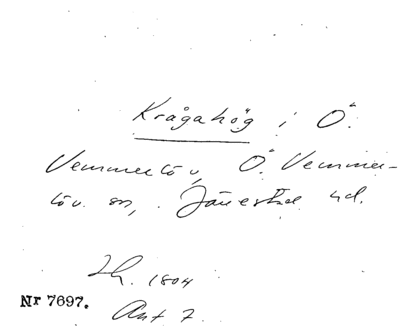 Krågahög i Ö.
Vemmerlöv, Ö. Vemmer-
löv sn, Järrestad hd.
Lh. 1804
Nr 7697.
Ant. 7.